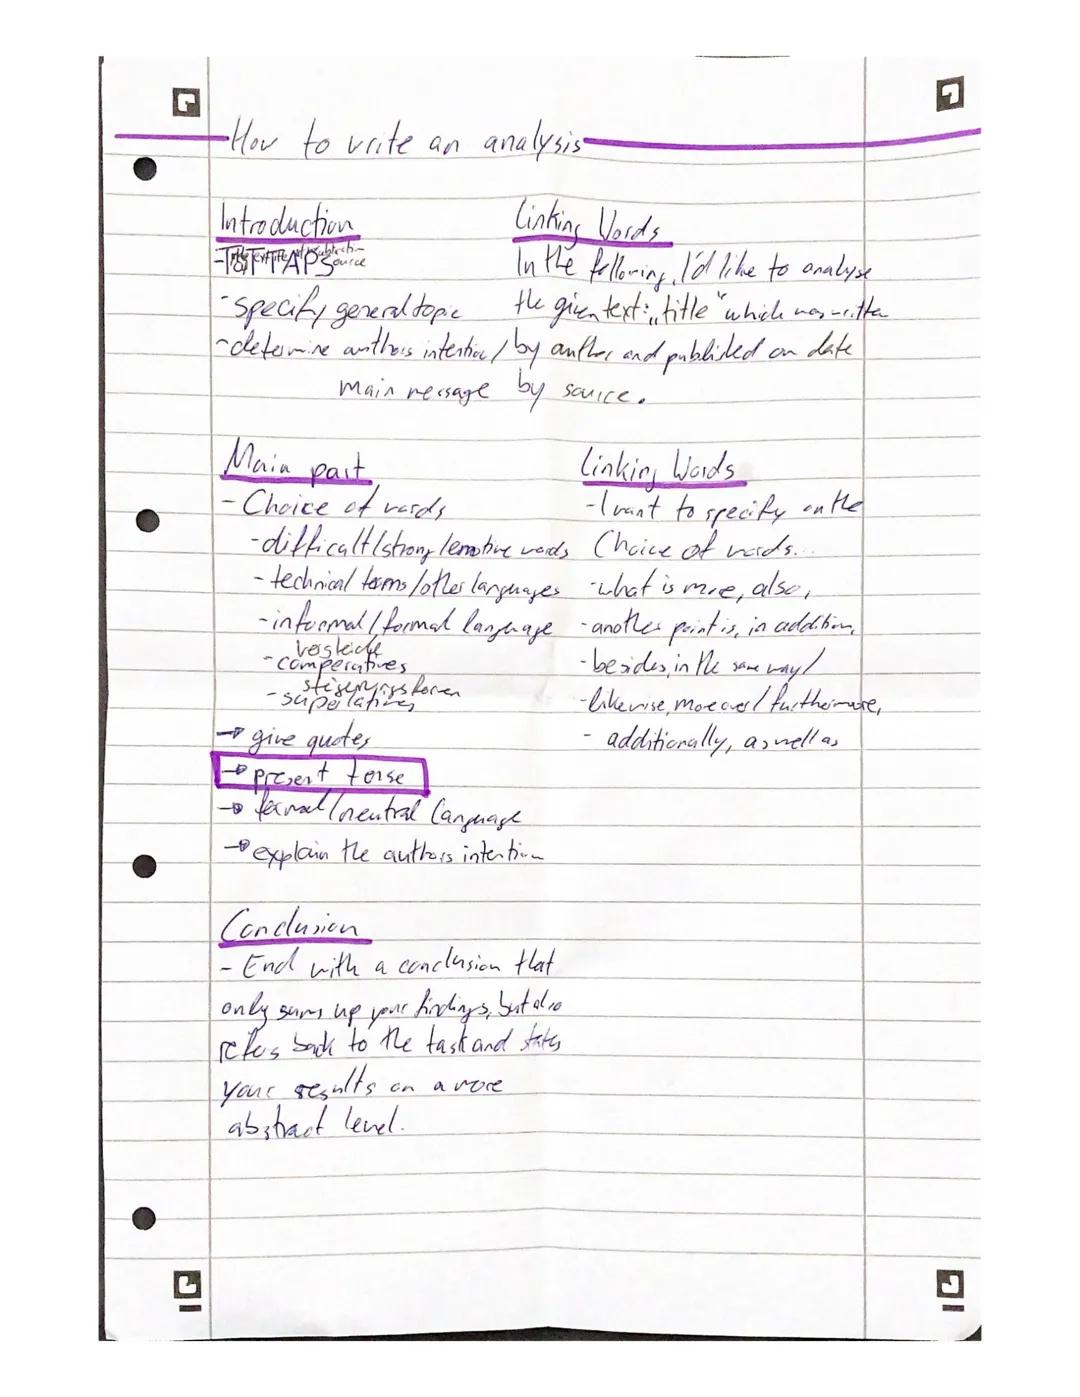 How to write an analysis
Introduction
- TSTTAPS
source
- specify general topic
- determine authors intention/
main message
Linking Words
In the following, I'd like to analyse
the given text: „title“ which was written
by author and published on date
by source.
Main part
- Choice of words
- difficult/strong/emotive words
- technical terms/other languages
- informal/formal language
Vergleiche
- comperatives
Steigerungsformen
- superlatives
→ give quotes
→ present tense
→ formal/neutral language
→ explain the authors intention
Linking Words
- I want to specify on the
Choice of words...
- what is more, also,
- another point is, in addition,
- besides, in the same way/
- likewise, moreover/furthermore,
- additionally, as well as
Conclusion
- End with a conclusion that
only sums up your findings, but also
refers back to the task and states
your results on a more
abstract level.